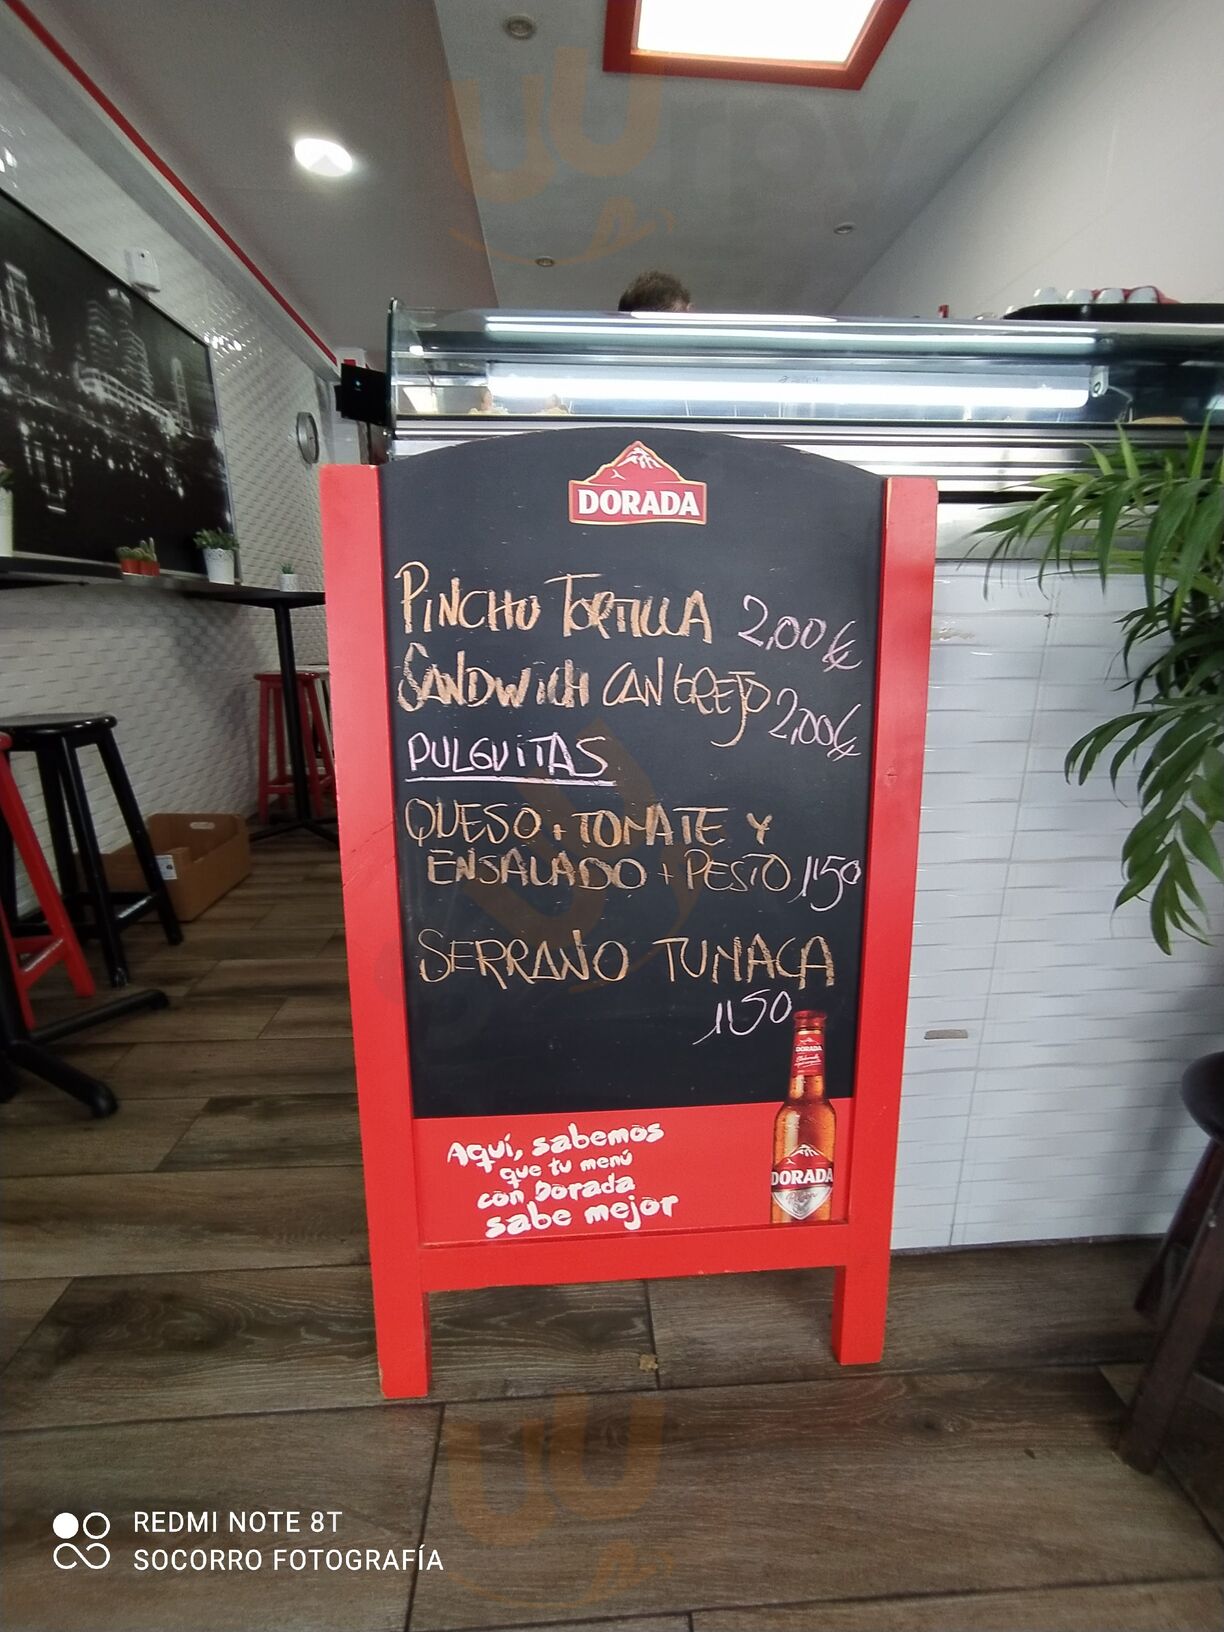 DORADA
PINCHO TORTILLA 2,00€
SANDWICH CANGREJO 2,00€
PULGUITAS
QUESO + TOMATE Y
ENSALADO + PESTO 1'50
SERRANO TUMACA
1'50
DORADA
DORADA
Aquí, sabemos
que tu menú
con Dorada
sabe mejor
REDMI NOTE 8T
SOCORRO FOTOGRAFÍA